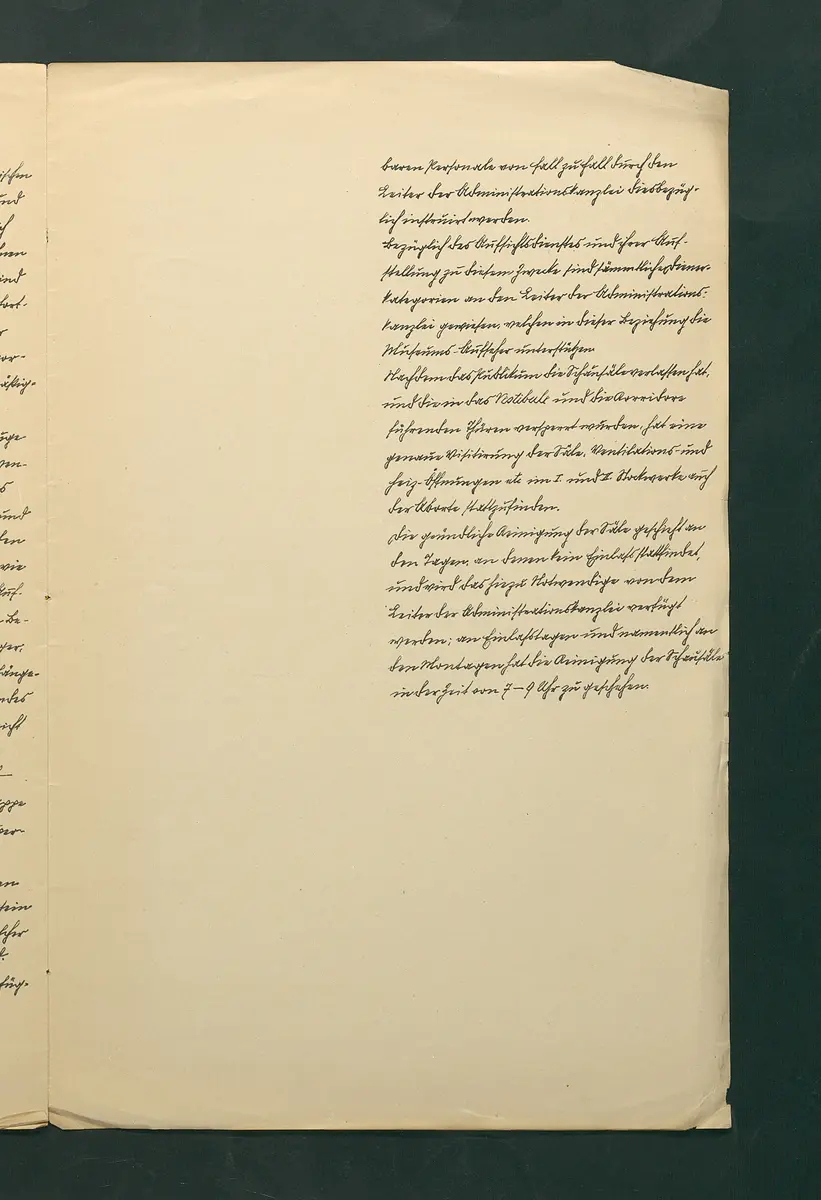 baren Personale von Fall zu Fall durch den
Leiter der Administrationskanzlei diesbezüg-
lich instruirt werden.
Bezüglich des Aufsichtsdienstes und ihrer Auf-
stellung zu diesem Zwecke sind sämmtliche Diener-
kategorien an den Leiter der Administrations-
kanzlei gewiesen, welchen in dieser Beziehung die
Museums-Aufseher unterstützen.
Nachdem das Publikum die Schausäle verlassen hat,
und die in das Vestibule und die Korridore
führenden Thüren versperrt wurden, hat eine
genaue Visitirung der Säle, Ventilations- und
Heiz-Öffnungen etc im I. und II. Stockwerke auch
der Aborte stattzufinden.
Die gründliche Reinigung der Säle geschieht an
den Tagen, an denen kein Einlass stattfindet,
und wird das hiezu Notwendige von dem
Leiter der Administrationskanzlei verfügt
werden; an Einlasstagen und namentlich an
den Montagen hat die Reinigung der Schausäle
in der Zeit von 7–9 Uhr zu geschehen.